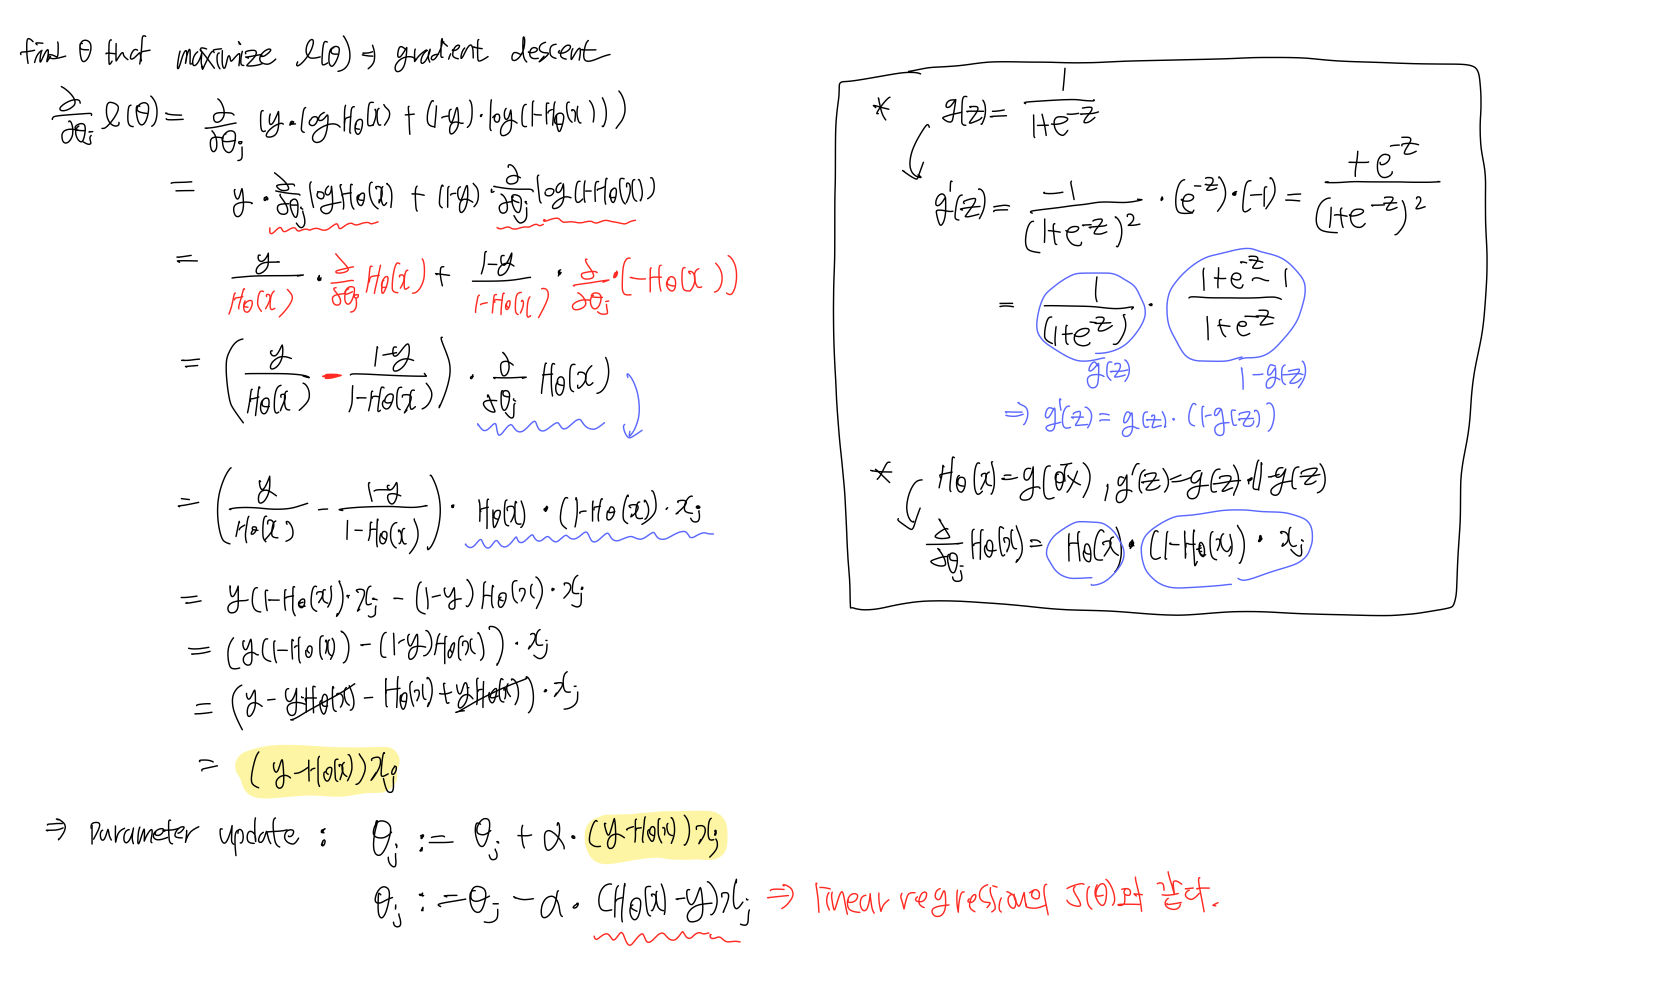 find θ that maximize ℓ(θ) → gradient descent
∂/∂θj ℓ(θ) = ∂/∂θj (y·log Hθ(x) + (1-y)·log(1-Hθ(x)))
= y·∂/∂θj log Hθ(x) + (1-y)·∂/∂θj log(1-Hθ(x))
= y/Hθ(x) · ∂/∂θj Hθ(x) + (1-y)/(1-Hθ(x)) · ∂/∂θj·(-Hθ(x))
= (y/Hθ(x) - (1-y)/(1-Hθ(x))) · ∂/∂θj Hθ(x)
= (y/Hθ(x) - (1-y)/(1-Hθ(x))) · Hθ(x)·(1-Hθ(x))·xj
= y(1-Hθ(x))·xj - (1-y)Hθ(x)·xj
= (y(1-Hθ(x)) - (1-y)Hθ(x))·xj
= (y - yHθ(x) - Hθ(x) + yHθ(x))·xj
= (y-Hθ(x))xj
⇒ parameter update : θj := θj + α·(y-Hθ(x))xj
θj := θj - α·(Hθ(x)-y)xj ⇒ linear regression의 J(θ)와 같다.
* g(z) = 1/(1+e^-z)
g'(z) = -1/(1+e^-z)^2 · (e^-z)·(-1) = +e^-z/(1+e^-z)^2
= 1/(1+e^-z) · (1+e^-z-1)/(1+e^-z)
g(z) 1-g(z)
⇒ g'(z) = g(z)·(1-g(z))
* Hθ(x) = g(θ^T x), g'(z) = g(z)·(1-g(z)
∂/∂θj Hθ(x) = Hθ(x)·(1-Hθ(x))·xj